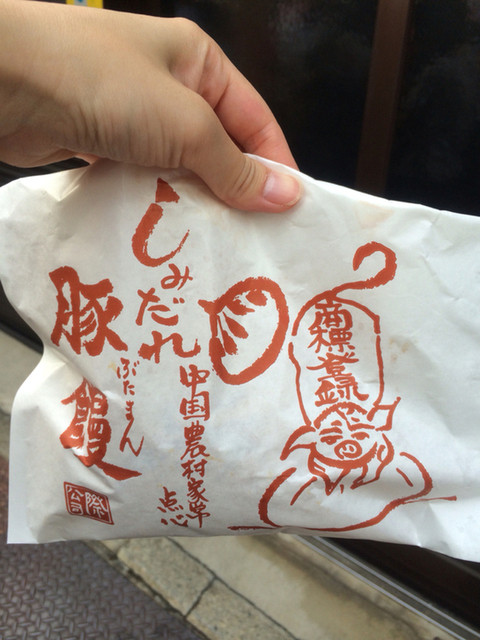 商標登録
中国農村家常点心
しみだれ
豚饅
ぶたまん